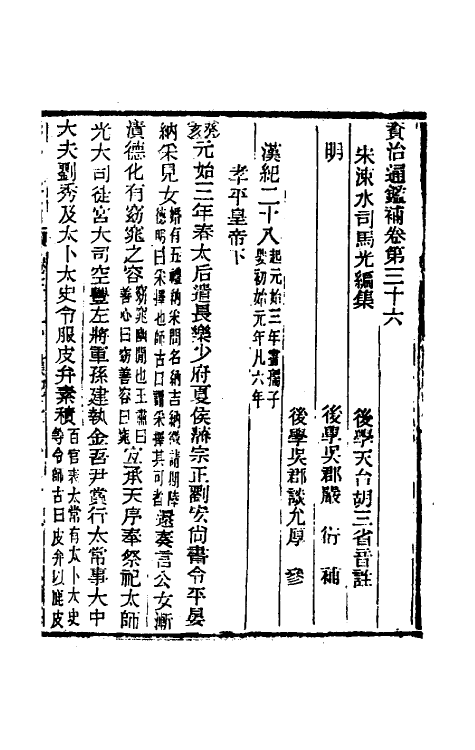 資治通鑑補卷第三十六
宋涑水司馬光編集
後學天台胡三省音註
明
後學吳郡嚴衍補
後學吳郡談允厚參
漢紀二十八起元始三年盡孺子嬰初始元年凡六年
孝平皇帝下
癸亥元始三年春太后遣長樂少府夏侯藩宗正劉宏尚書令平晏
納采見女婚有五禮納采問名納吉納徵請期陸德明曰采擇也師古曰謂采擇其可者還奏言公女漸
漬德化有窈窕之容窈窕幽閒也王肅曰善心曰窈善容曰窕宜承天序奉祭祀太師
光大司徒宮大司空豐左將軍孫建執金吾尹賞行太常事大中
大夫劉秀及太卜太史令服皮弁素積百官表太常有太卜太史等令師古曰皮弁以鹿皮